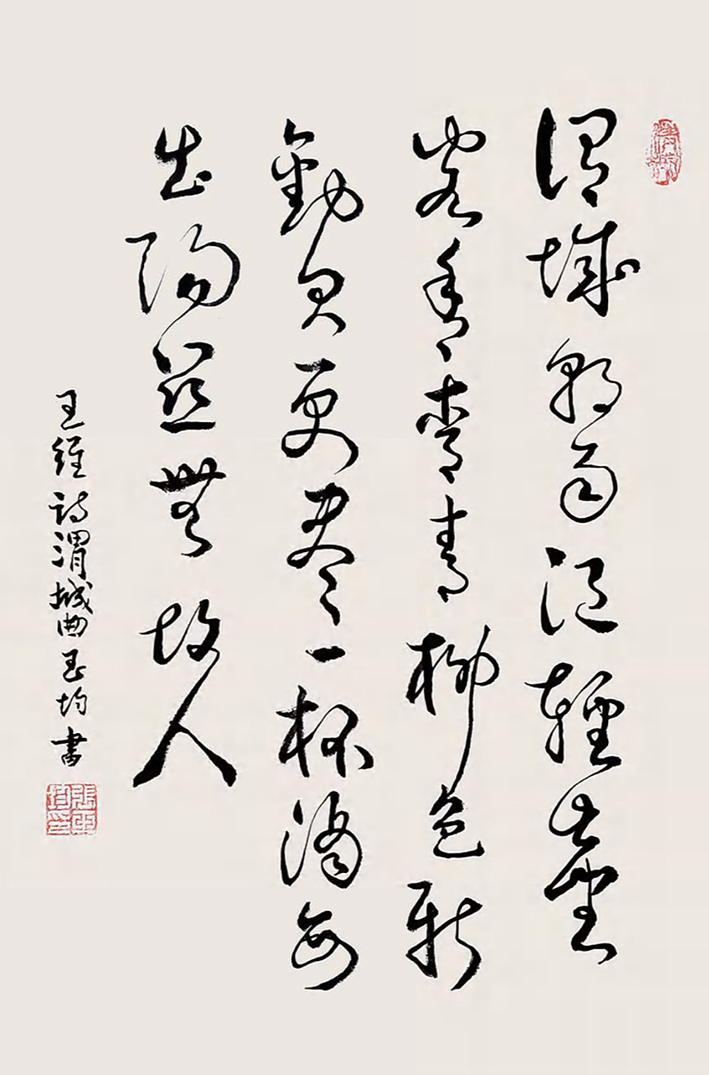 渭城朝雨浥輕塵
客舍青青柳色新
勸君更盡一杯酒西
出陽關無故人
王維詩渭城曲玉均書
張玉均印